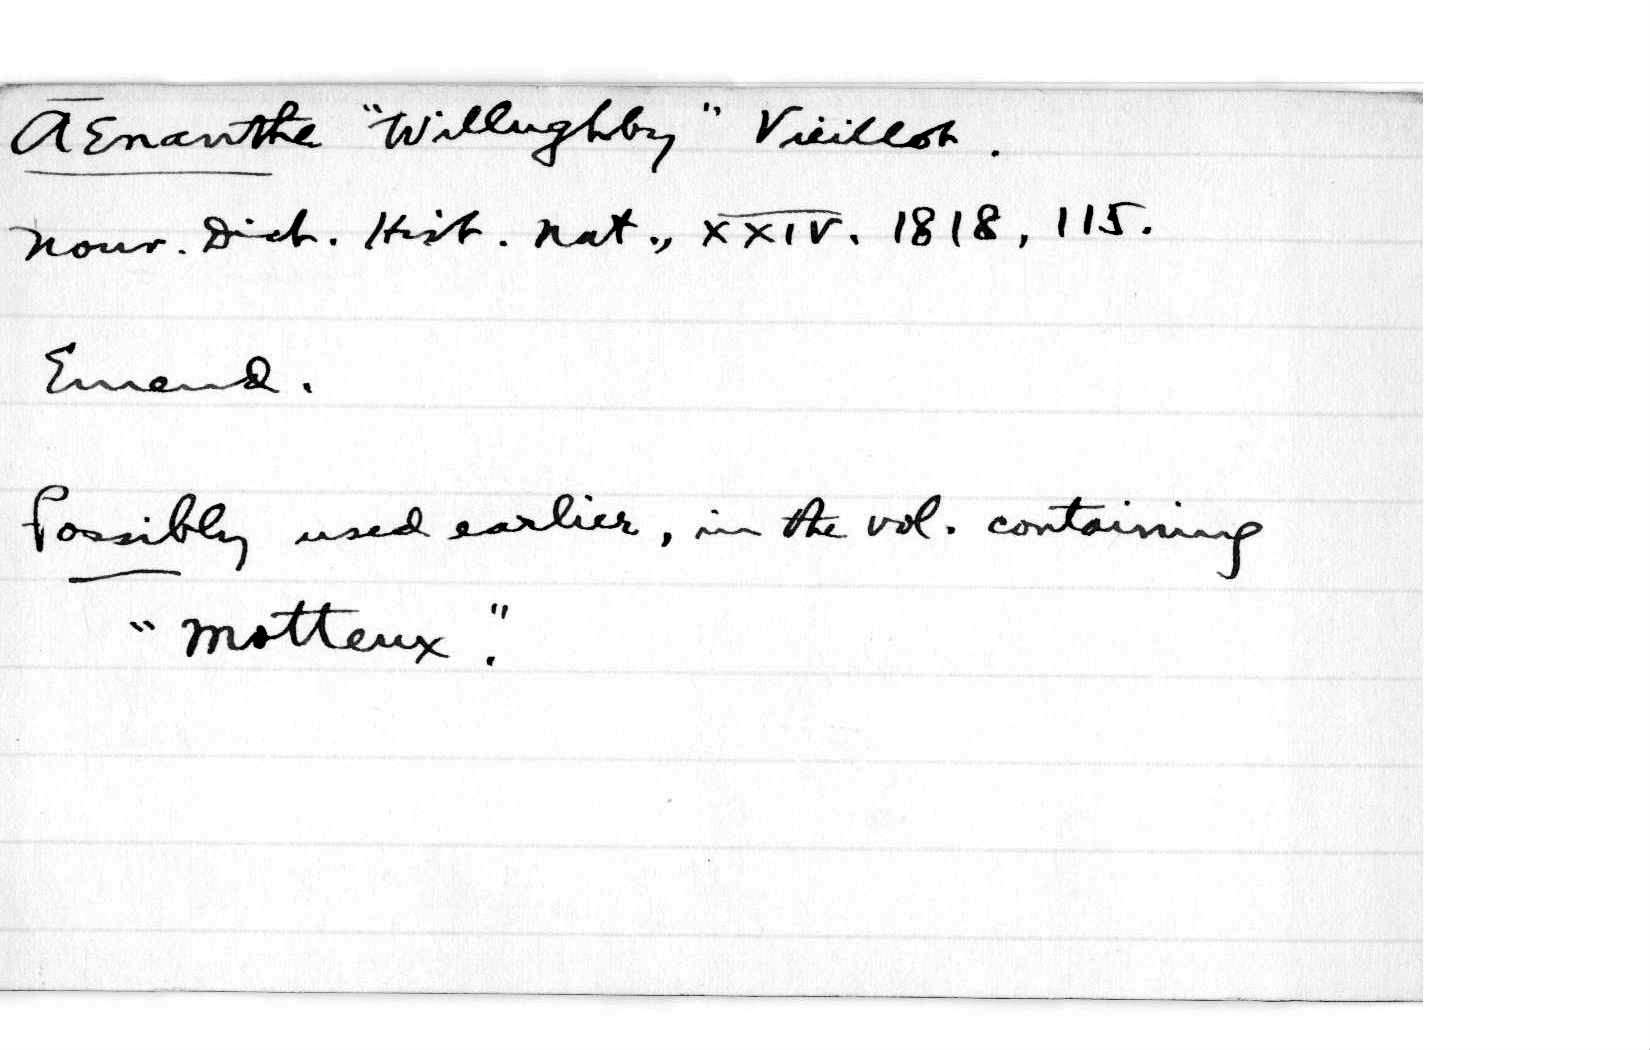 AEnanthe "Willughby" Vieillot.
Nouv. Dict. Hist. Nat., XXIV. 1818, 115.
Emend.
Possibly used earlier, in the vol. containing
"Motteux".